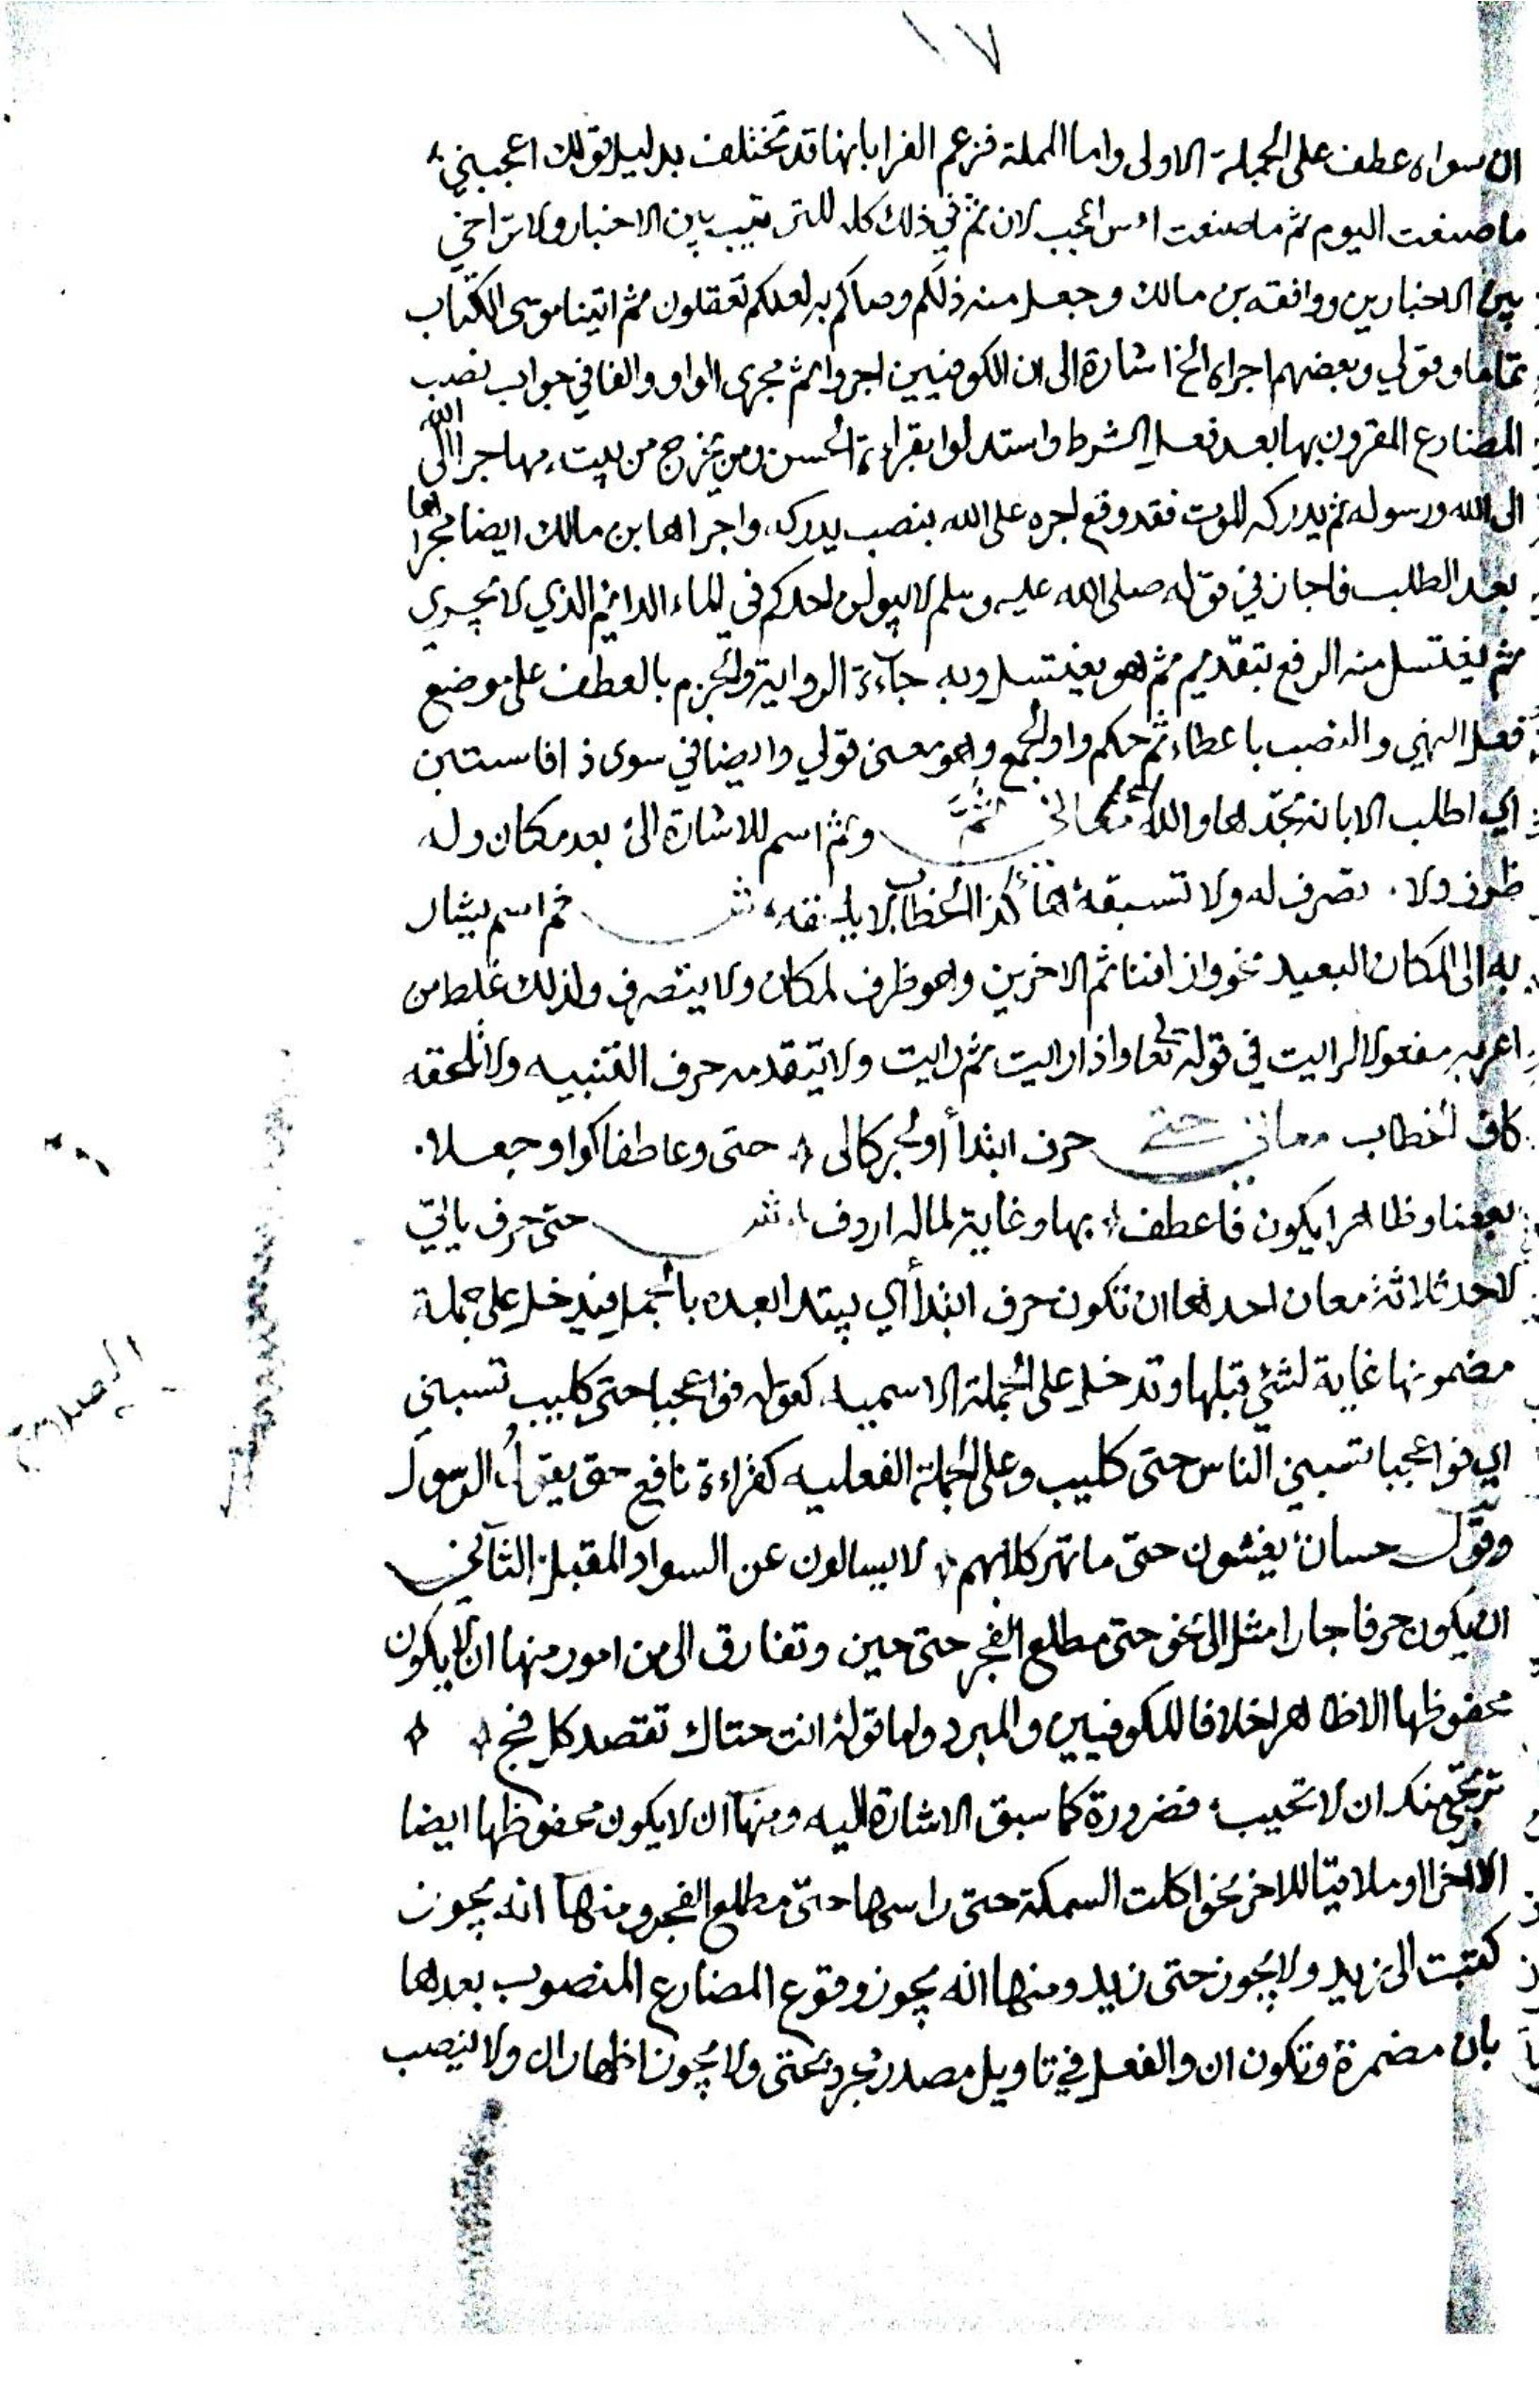 ١٧
ان سواه عطف على الجملة الاولى واما المهلة فزعم الفرا بانها قد تختلف بدليل قولك اعجبني
ما صنعت اليوم ثم ما صنعت امس اعجب لان ثم في ذلك كله للترتيب بين الاخبار ولا تراخي
بين الاخبارين ووافقه بن مالك وجعل منه ذلكم وصاكم به لعلكم تعقلون ثم اتينا موسى الكتاب
تماما وقولي وبعضهم اجراه الخ اشارة الى ان الكوفيين اجروا ثم مجرى الواو والفا في جواب نصب
المضارع المقرون بها بعد فعل الشرط واستدلوا بقراءة الحسن ومن يخرج من بيته مهاجرا الى الله
الى الله ورسوله ثم يدركه الموت فقد وقع اجره على الله بنصب يدركه واجراها بن مالك ايضا مجراها
بعد الطلب فاجاز في قوله صلى الله عليه وسلم لا يبولن احدكم في الماء الدائم الذي لا يجري
ثم يغتسل منه الرفع بتقديم ثم هو يغتسل وبه جآءة الرواية والجزم بالعطف على موضع
فعل النهي والنصب باعطاء ثم حكم واو الجمع وهو معنى قولي وايضا في سوى ذا فاستبن
اي اطلب الابانة تجدها والله معاني ثم وثم اسم للاشارة الى بعد مكان وله
ظرف ولا تصرف له ولا تسبقه ها كذا الخطاب لا يلحقه ش ثم اسم يشار
به الى المكان البعيد نحو وازلفنا ثم الاخرين وهو ظرف لمكان ولا يتصرف ولذلك غلط من
اعربه مفعولا لرايت في قوله تعا واذا رايت ثم رايت ولا يتقدمه حرف التنبيه ولا تلحقه
كاف الخطاب معاني حتى حرف ابتدأ او لجر كالى حتى وعاطفا كواو جعلا
بعضا وظاهرا يكون فاعطف بها وغاية لماله اردف ش حتى حرف ياتي
لاحد ثلاثة معان احدها ان تكون حرف ابتدأ اي يبتدا بعده بالجمل فيدخل على جملة
مضمونها غاية لشئ قبلها وتدخل على الجملة الاسميه كقوله فواعجبا حتى كليب تسبني
اي فواعجبا تسبني الناس حتى كليب وعلى الجملة الفعليه كقراءة نافع حتى يقول الرسول
وقول حسان يغشون حتى ما تهر كلابهم لا يسالون عن السواد المقبل الثاني
ان يكون حرفا جارا مثل الى نحو حتى مطلع الفجر حتى حين وتفارق الى من امور منها ان لا يكون
مخفوظها الا ظاهرا خلافا للكوفيين والمبرد واما قوله انت حتاك تقصد كل فج
ترجي منك ان لا تخيب فضرورة كما سبق الاشارة اليه ومنها ان لا يكون مخفوظها ايضا
الا اخرا او ملاقيا للاخر نحو اكلت السمكة حتى راسها حتى مطلع الفجر ومنها انه يجوز
كتبت الى زيد ولا يجوز حتى زيد ومنها انه يجوز وقوع المضارع المنصوب بعدها
بان مضمرة وتكون ان والفعل في تاويل مصدر مجرد بحتى ولا يجوز اظهار ان ولا ينصب